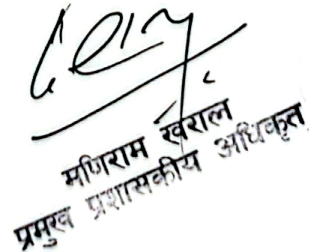 मणिराम खराल
प्रमुख प्रशासकीय अधिकृत